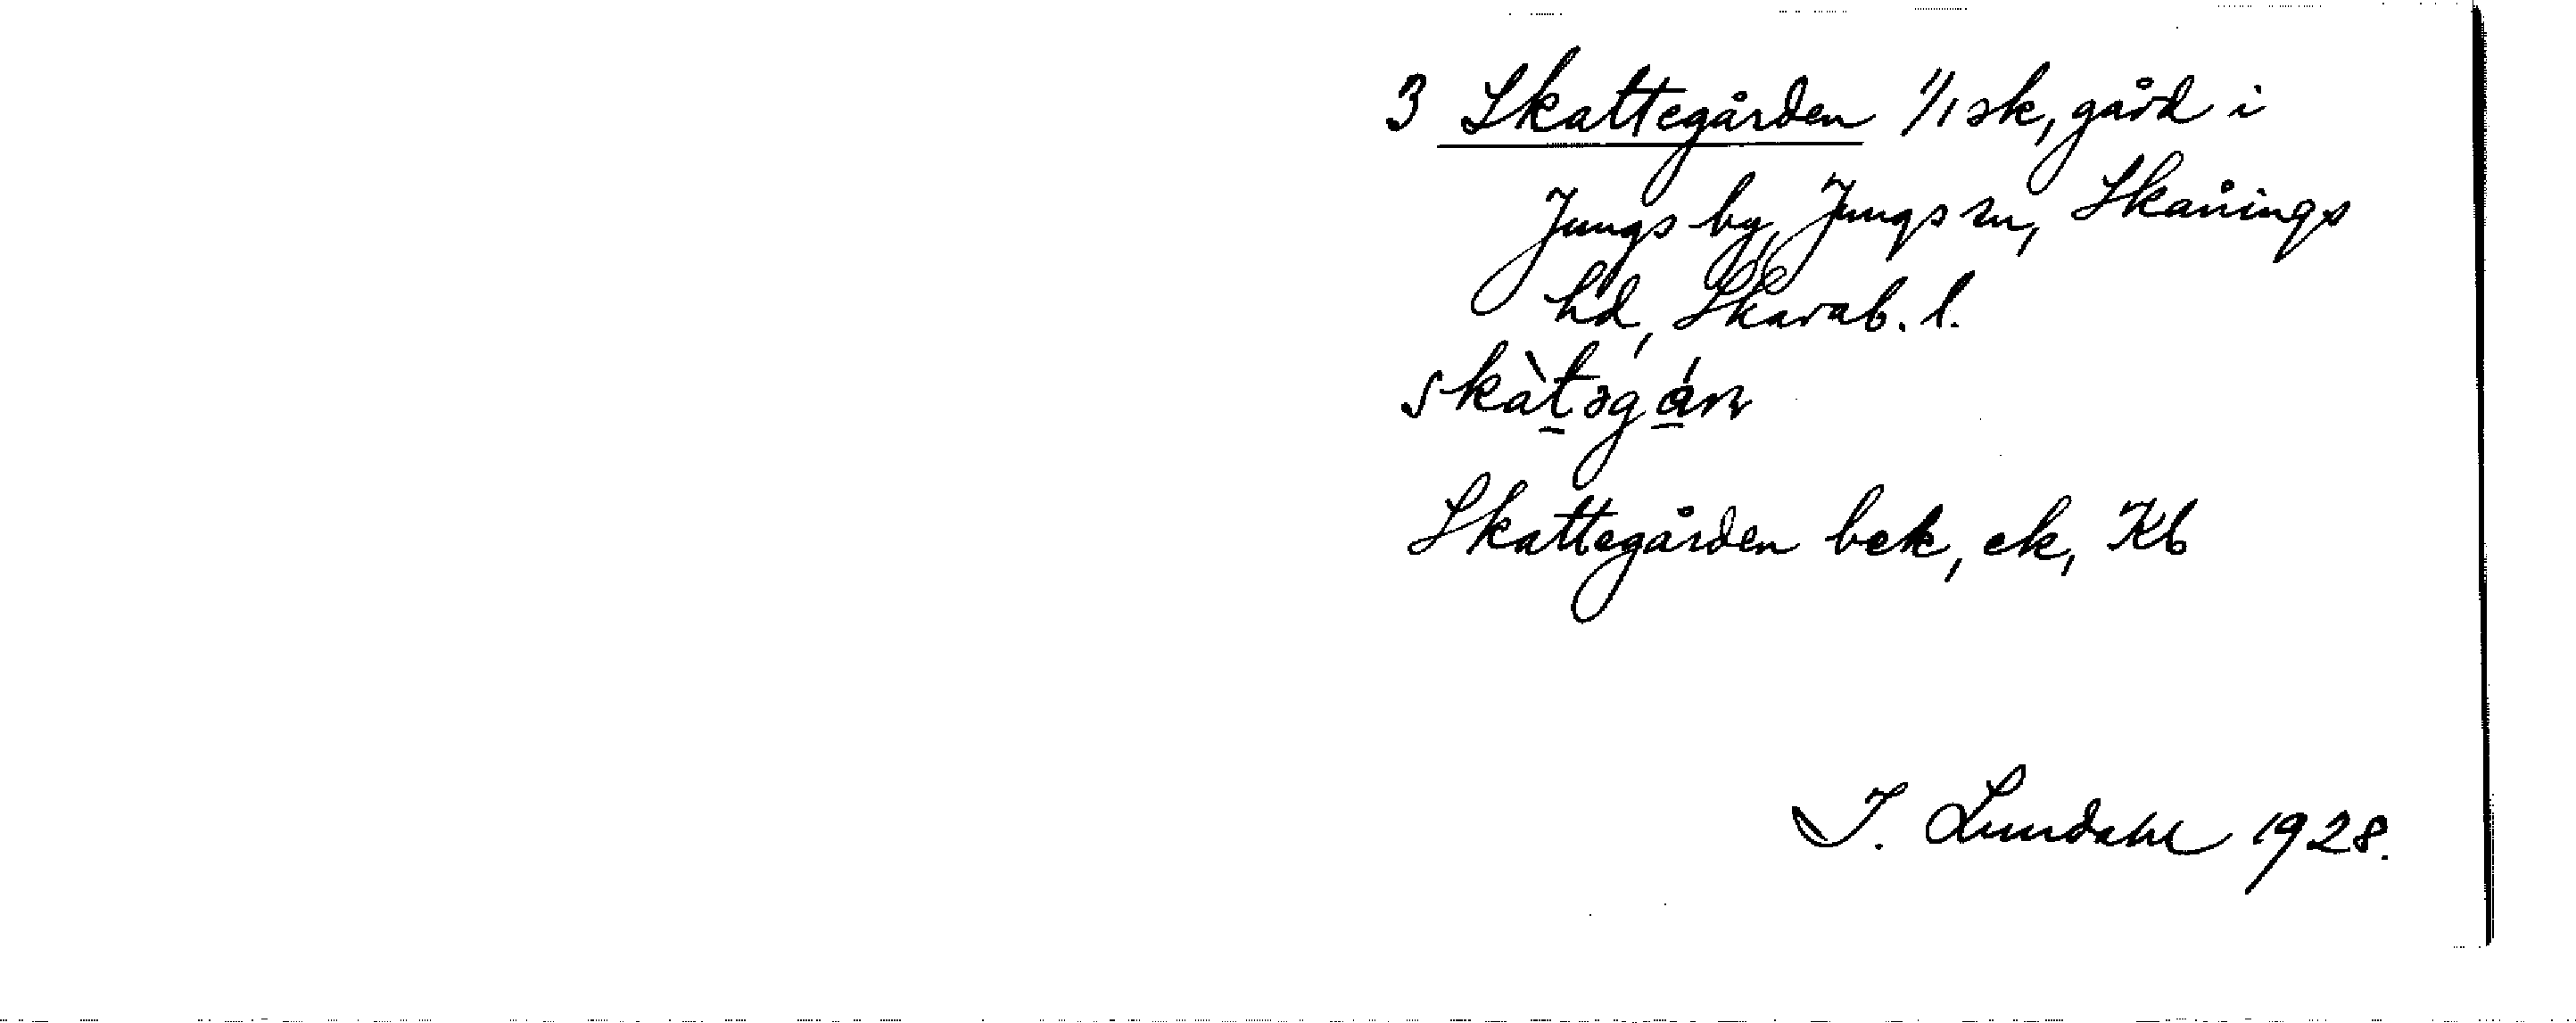 3 Skattegården 1/1 sk, gård i
Jungs by, Jungs sn, Skånings
hd, Skarab. l.
skàt̠əgá̠rn
Skattegården bek, ek, Kb
I. Lundahl 1928.